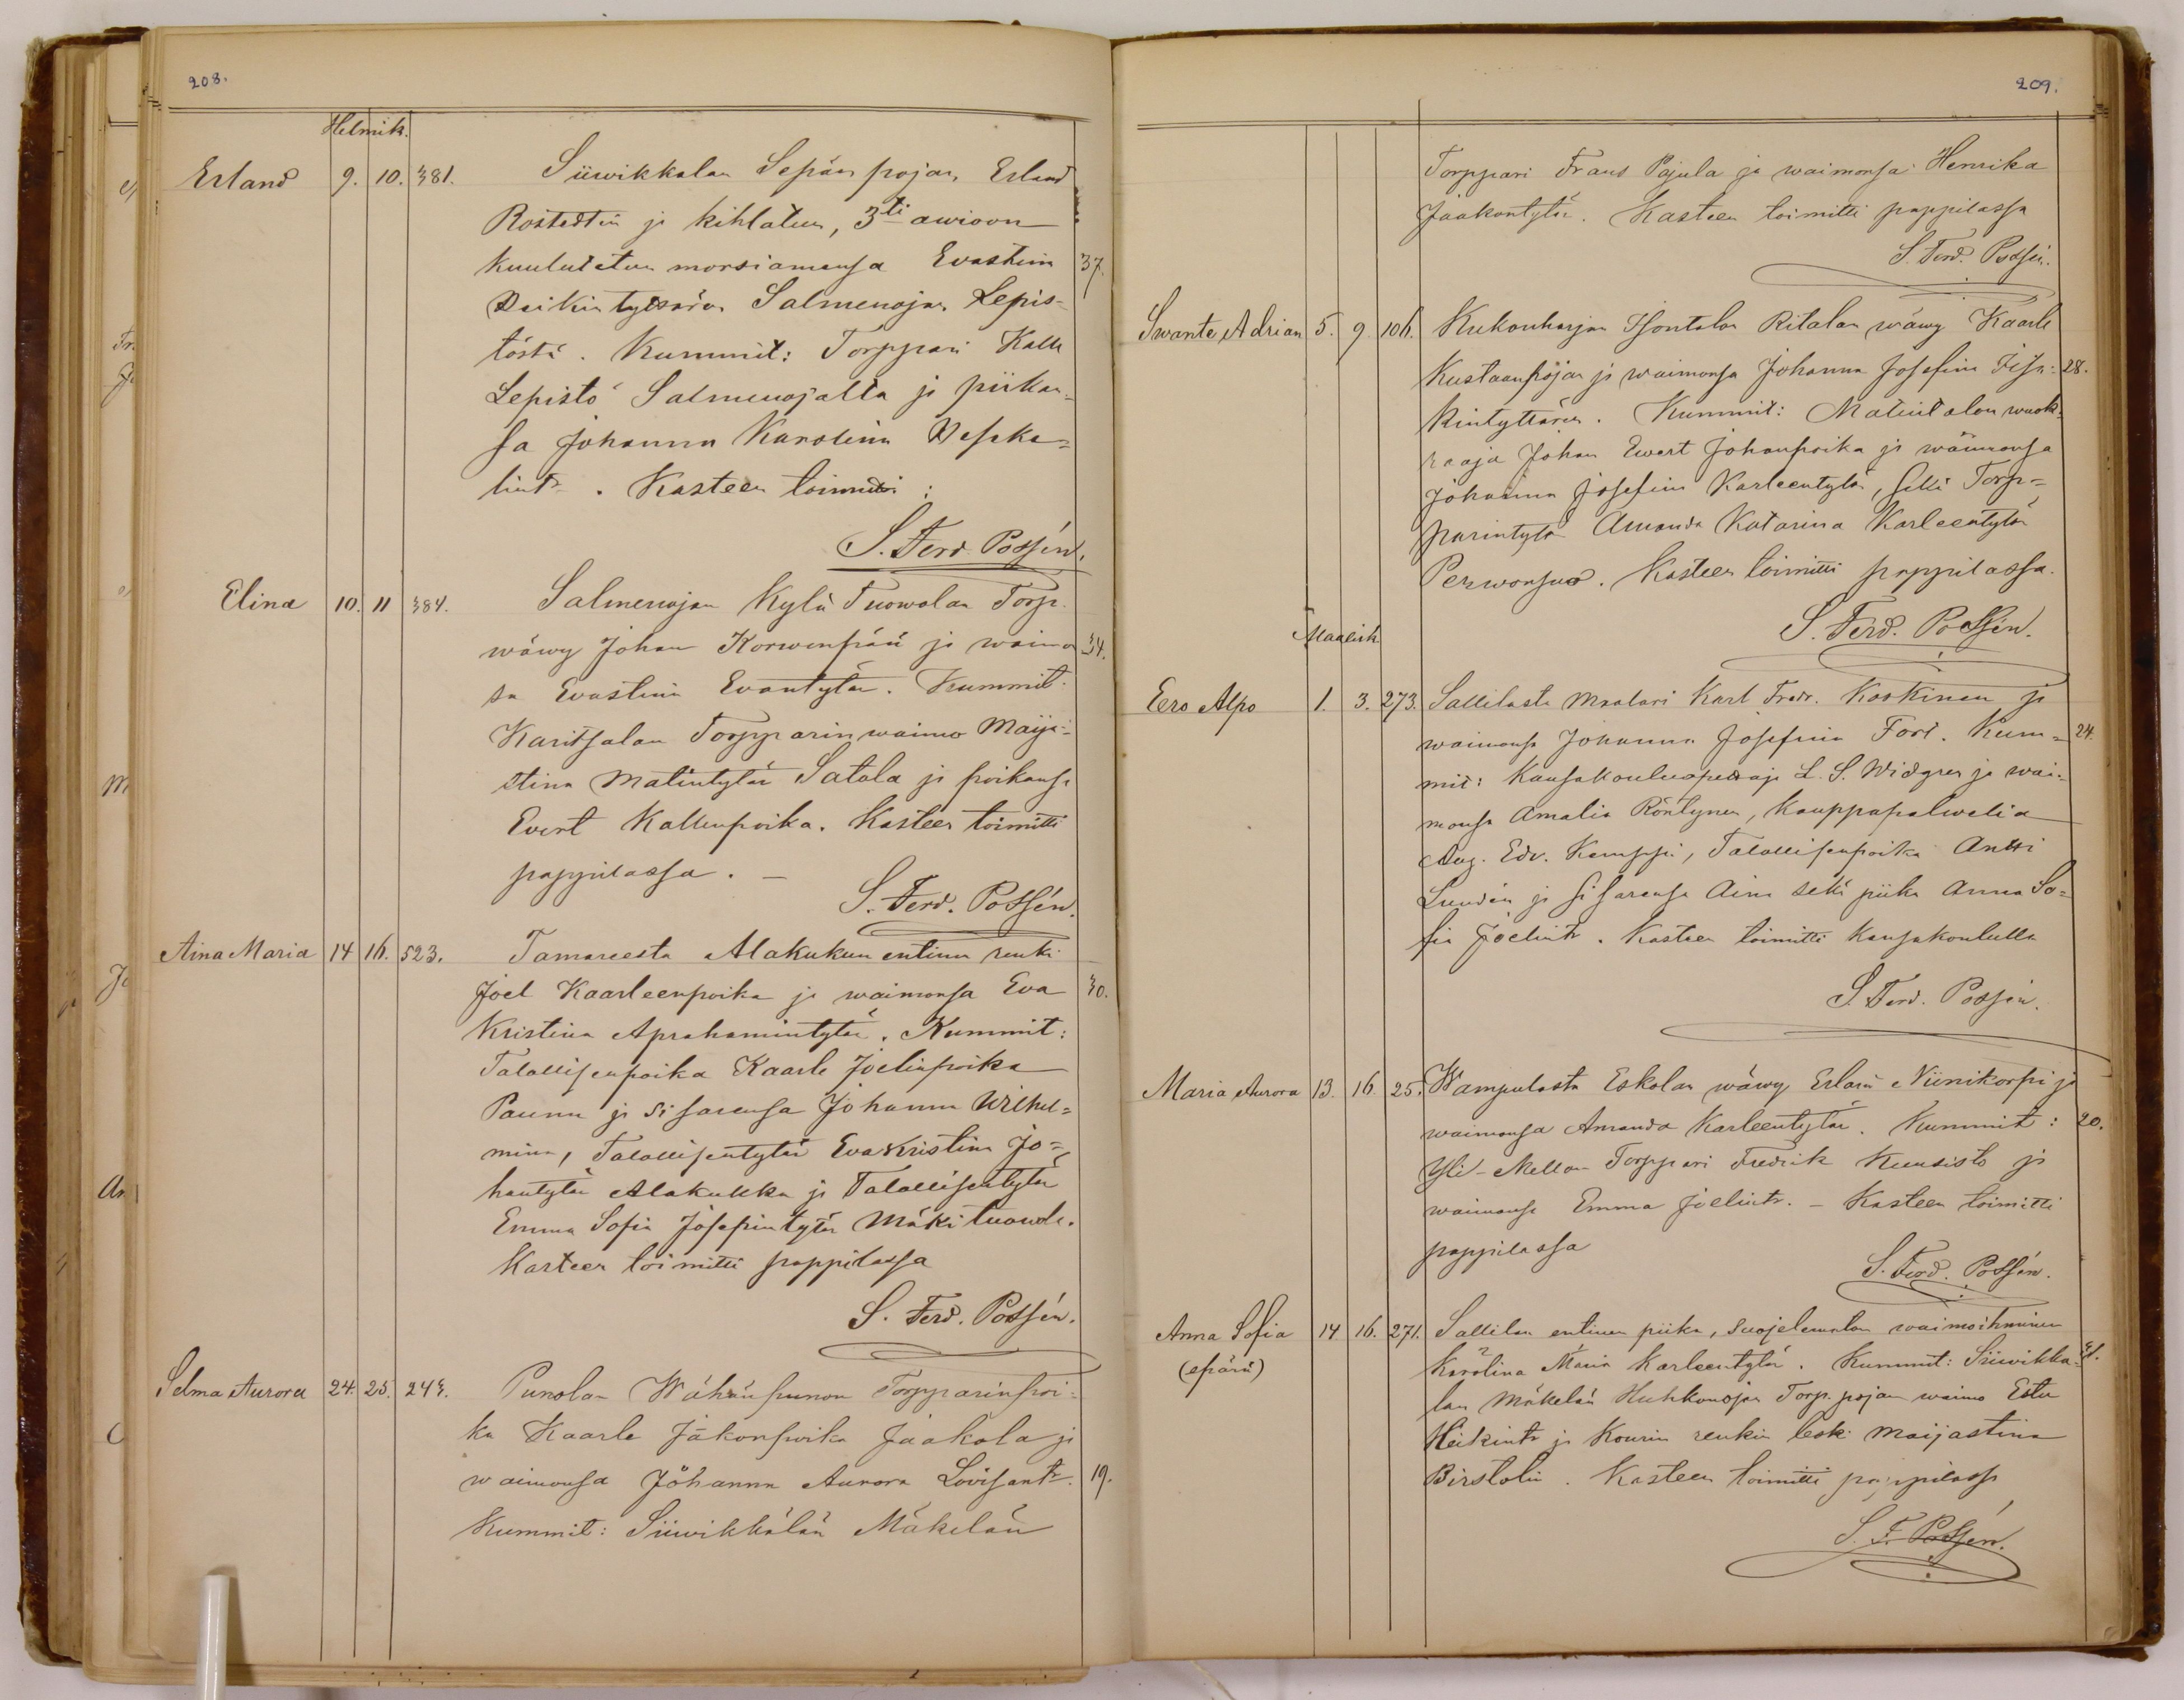 208.
Helmik.
Erland 9. 10. 381. Siiwikkalan Sepän pojan, Erland
Rostedtin ja kihlatun, 3ti awioon
kuulutetun morsiamensa Evastiina 37.
Heikintyttären Salmenojan Lepis-
töstä. Kummit: Torppari Kalle
Lepistö Salmenojalta ja piikan-
sa Johanna Karolina
lintr. Kasteen toimitti:
S. Ferd. Possén.
Elina 10. 11 384. Salmenojan Kylä Tuowolan Torp.
wäwy Johan Korwenpää ja waimon 34.
sa Evastiina Evantytär. Kummit:
Karitsalan Torpparin waimo Maija-
stina Matintytär Satola ja poikansa
Evert Kallenpoika. Kasteen toimitti
pappilassa. —
S. Ferd. Possén.
Aina Maria 14 16. 523. Tamareesta Alakukun entinen renki
Joel Kaarleenpoika ja waimonsa Eva 30.
Kristina Aprahamintytär. Kummit:
Talollisenpoika Kaarle Joelinpoika
Paunu ja sisarensa Johanna Wilhel-
mina, Talollisentytär Eva Kristina Jo-
hantytär Alakukku ja Talollisentytär
Emma Sofia Josepintytär Mäkituowola.
Kasteen toimitti pappilassa
S. Ferd. Possén.
Selma Aurora 24. 25. 243. Punolan Wähänpunon Torpparinpoi-
ka Kaarle Jäkonpoika Jaakola ja
waimonsa Johanna Aurora Lovisantr. 19.
Kummit: Siiwikkalan Mäkelän
209.
Torppari Frans Pajula ja waimonsa Henrika
Jaakontytär. Kasteen toimitti pappilassa
S. Ferd. Possén.
Swante Adrian 5. 9 106. Kukonharjan Isontalon Ritalan wäwy Kaarle
Kustaanpojan ja waimonsa Johanna Josefina Fisa- 28.
kintyttären. Kummit: Matintalon wuok-
raaja Johan Ewert Johanpoika ja waimonsa
Johanna Josefina Karleentytär, sekä Torp-
parintytär Amanda Katarina Karleentytär
Perwonsuo. Kasteen toimitti pappilassa.
S. Ferd. Possén.
Maalisk.
Eero Alpo 1. 3. 273. Sallilasta Maalari Karl Fredr. Koskinen ja
waimonsa Johanna Josefina Fors. Kum- 24.
mit: Kansakoulunopettaja L. S. Widgren ja wai-
monsa Amalia Röntynen, Kauppapalwelia
Aug. Edv. Kemppi, Talollisenpoika Antti
Lundén ja sisarensa Aina sekä piika Anna So-
fia Joelintr. Kasteen toimitti Kansakoululla
S. Ferd. Possén.
Maria Aurora 13. 16 25. Wampulasta Eskolan wäwy Erland Niinikorpi ja
waimonsa Amanda Karleentytär. Kummit: 20.
Yli-Mellon Torppari Fredrik Kuusisto ja
waimonsa Emma Joelintr. — Kasteen toimitti
pappilassa
S. Ferd. Possén.
Anna Sofia 14 16. 271. Sallilan entinen piika, suojelewalan waimoihminen
(epärä) Karolina Maria Karleentytär. Kummit: Siiwikka-
lan Mäkelän Huhkonojan Torp. pojan waimo Ester
Heikintr ja Kourin renkin leski Maijastina
Birstolin. Kasteen toimitti pappilassa
S. F. Possén.